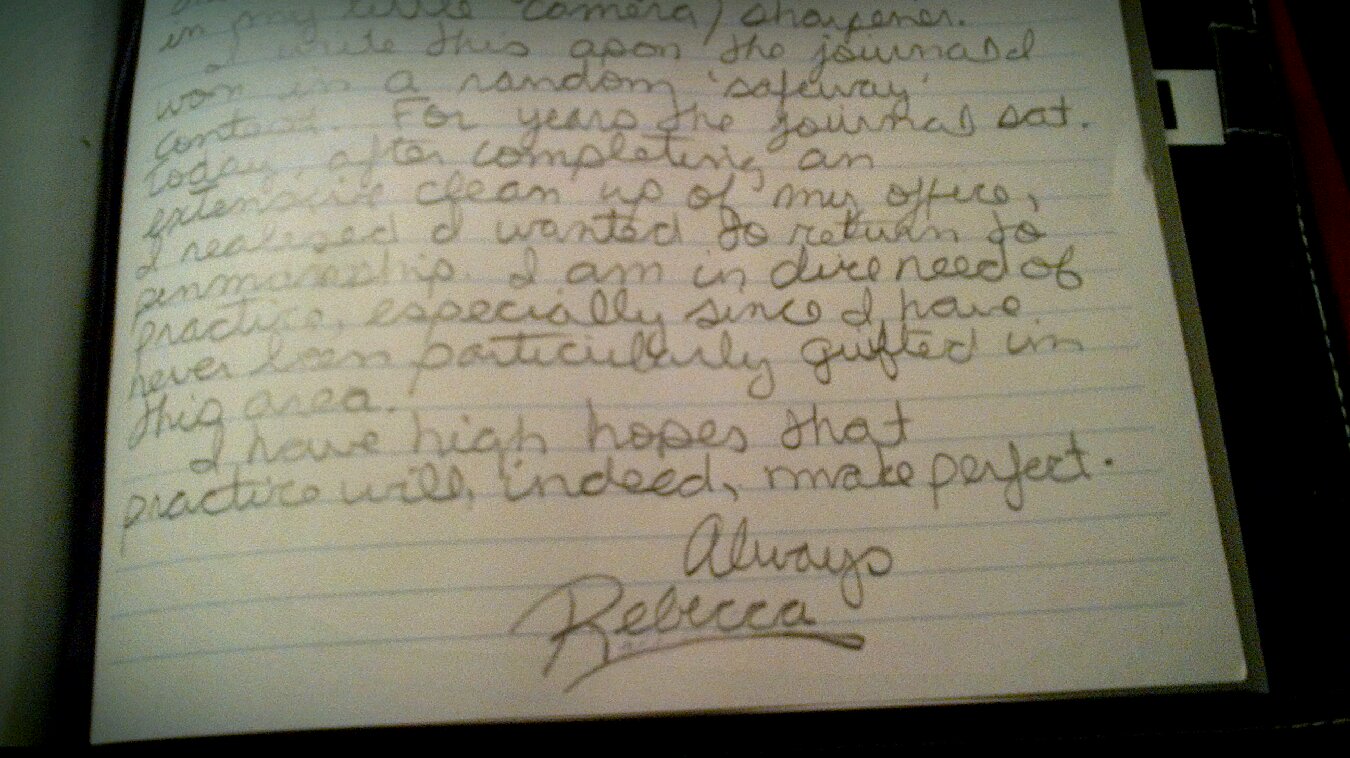 in my little camera/sharpener.
I write this apon the journal I
won in a random 'safeway'
contest. For years the journal sat.
Today, after completing an
extensive clean up of my office,
I realized I wanted to return to
penmanship. I am in dire need of
practice, especially since I have
never been particularly guifted in
this area.
I have high hopes that
practice will, indeed, make perfect.
Always
Rebecca